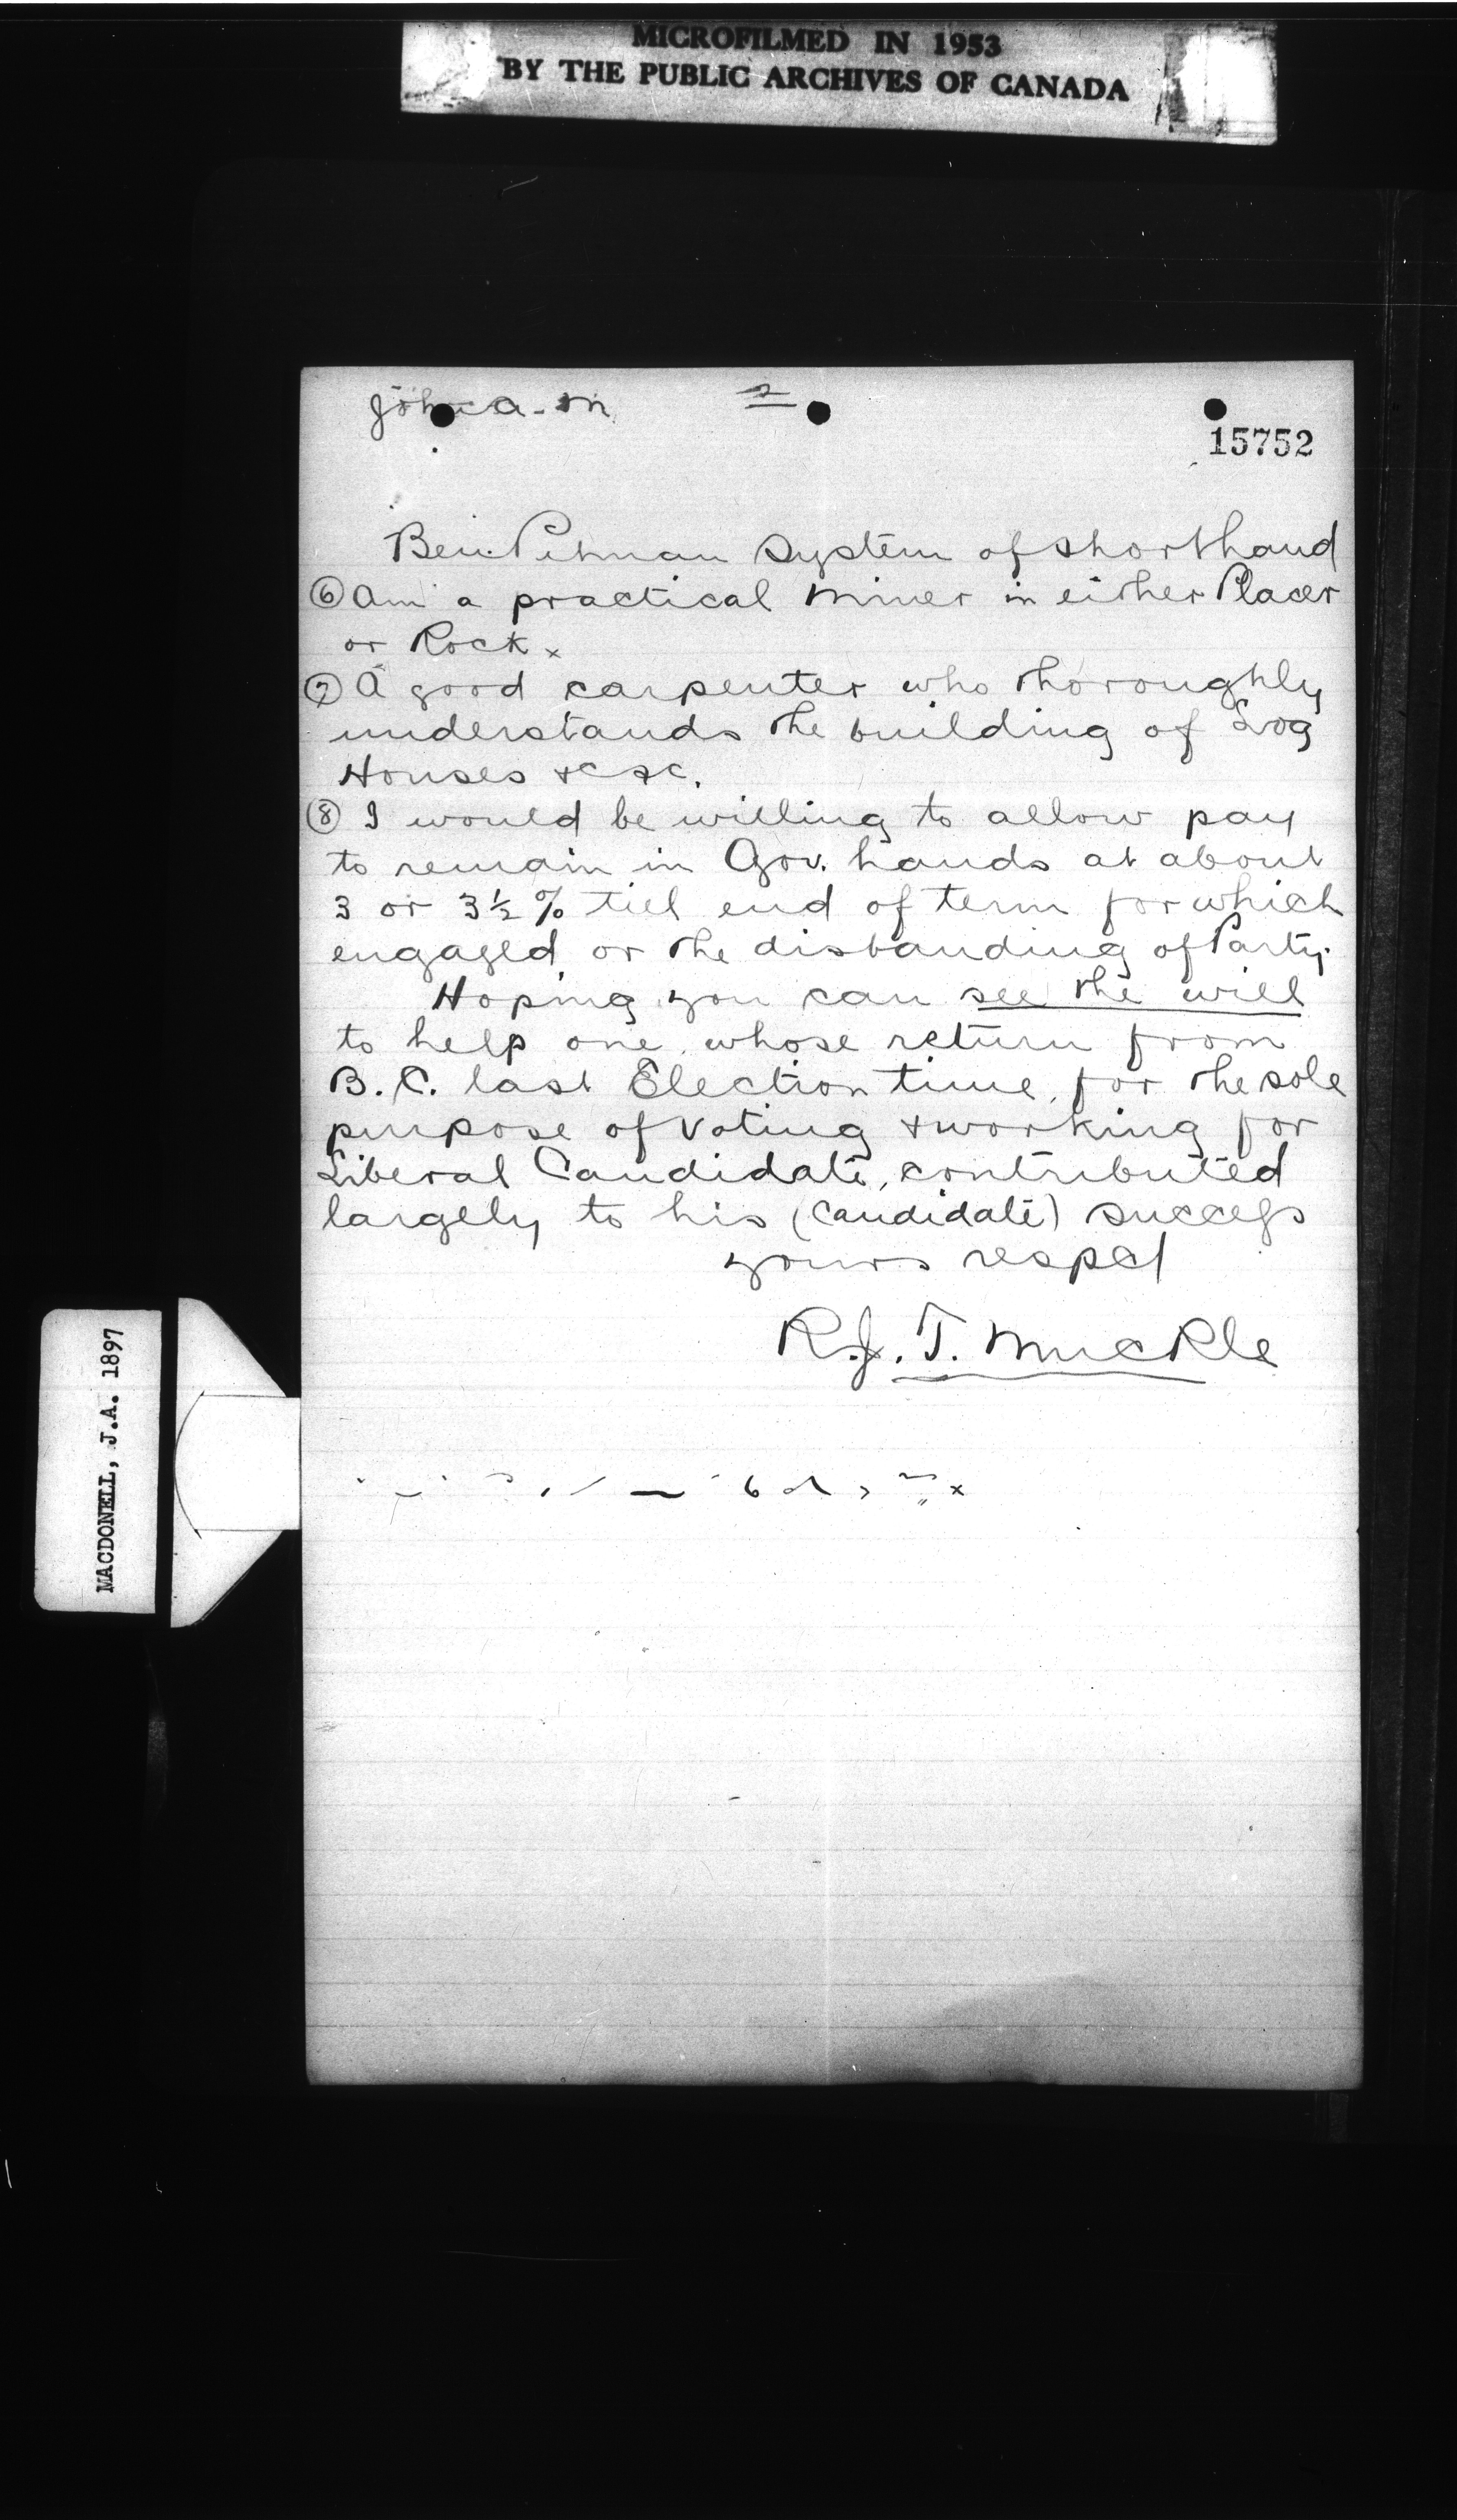 MICROFILMED IN 1953
BY THE PUBLIC ARCHIVES OF CANADA
John A-M 2
15752
Ben. Pitman System of Shorthand
⑥ Am a practical Miner in either Placer
or Rock x
⑦ A good carpenter who thoroughly
understands the building of Log
Houses &c &c.
⑧ I would be willing to allow pay
to remain in Gov. hands at about
3 or 3½ % till end of term for which
engaged or the disbanding of Party.
Hoping you can see the will
to help one whose return from
B.C. last Election time, for the sole
purpose of voting & working for
Liberal Candidate, contributed
largely to his (Candidate) success
yours respect
R.J.T. Muckle
MACDONELL, J.A. 1897